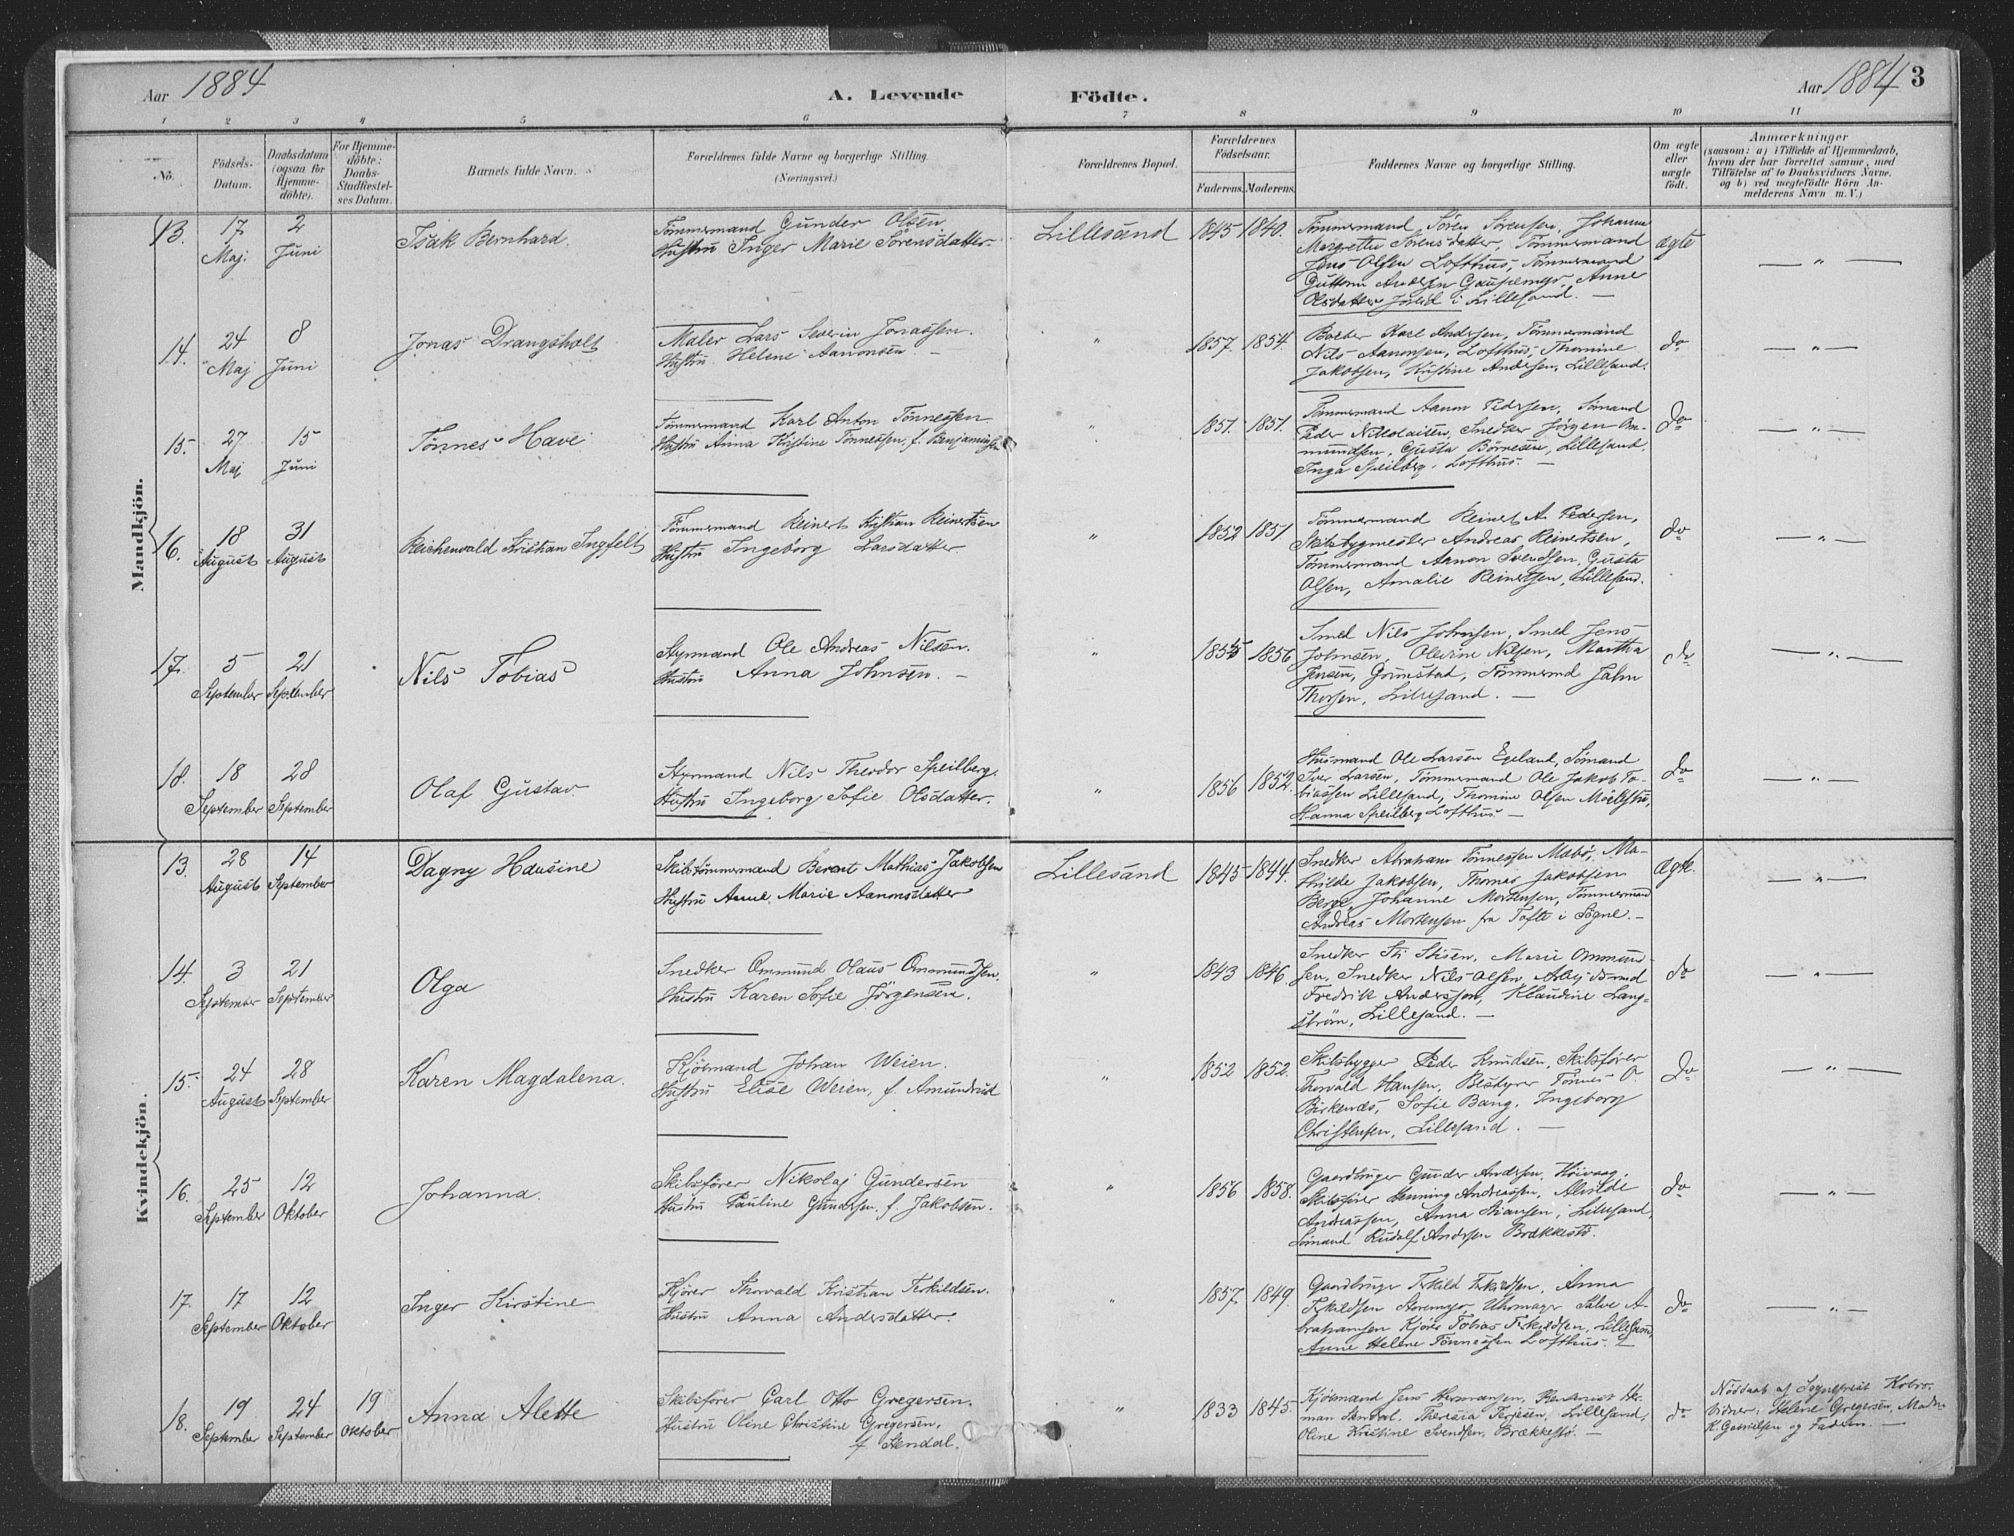 Aar 1884
A. Levende Födte.
Aar 1884 3
1 2 3 4 5 6 7 8 9 10 11
No.
Födsels-Datum.
Daabsdatum (ogsaa for Hjemme-döbte).
For Hjemme-döbte: Daabs-Stadfæstel-ses Datum.
Barnets fulde Navn.
Forældrenes fulde Navne og borgerlige Stilling. (Næringsvei.)
Forældrenes Bopæl.
Forældrenes Födselsaar.
Faderens. Moderens.
Faddernes Navne og borgerlige Stilling.
Om ægte eller uægte födt.
Anmærkninger
(saasom: a) i Tilfælde af Hjemmedaab,
hvem der har forrettet samme, med
Tilföielse af to Daabsvidners Navne,
og b) ved uægtefödte Börn An-
melderens Navn m.V.)
Mandkjön.
13. 17 Maj. 2 Juni
Isak Bernhard.
Tømmermand Gunder Olsen
Hustru Inger Marie Sørensdatter
Lillesand 1845 1840.
Tømmermand Søren Sørensen, Johanne
Margrethe Sørensdatter, Tømmermand
Jens Olsen Lofthus, Tømmermand
Guttorm Andersen Gaupemyr, Anne
Olsdatter i Lillesand. —
ægte
— " —
14. 24 Maj 8 Juni
Jonas Drangsholt
Maler Lars Severin Jonassen.
Hustru Helene Aanonsen —
" 1857. 1854.
Karl Andersen, Tømmermand
Nils Aanonsen, Lofthus, Thomine
Jakobsen, Kristine Andersen, Lillesand.
do
— " —
15. 27 Maj 15 Juni
Tönnes Have
Tømmermand Karl Anton Tönnessen
Hustru Anna Kristine Tönnessen, f. Benjaminsen
" 1851. 1851.
Tømmermand Aanon Pedersen, Sømand
Peder Nikolaisen, Snedker Jörgen Om-
mundsen, Gusta Börresen, Lillesand.
Inga Speilberg, Lofthus. —
do
— " —
16. 18 August 31 August
Reichenvald Kristian Ingfelt
Tømmermand Reinert Kristian Reinertsen
Hustru Ingeborg Larsdatter
" 1852 1851
Tømmermand Reinert A. Pedersen,
Skibsbygmester Andreas Reinertsen,
Tømmermand Aanon Svendsen, Gusta
Olsen, Amalie Reinertsen, Lillesand.
do
— " —
17. 5 September 21 September
Nils Tobias
Styrmand Ole Andreas Nilsen.
Hustru Anna Johnsen. —
" 1855 1856
Smed Nils Johnsen, Smed Jens
Johnsen, Olevine Nilsen, Martha
Jensen, Grimstad, Tømmermd John
Thorsen, Lillesand. —
do
— " —
18. 18 September 28 September
Olaf Gustav
Styrmand Nils Theodor Speilberg.
Hustru Ingeborg Sofie Olsdatter.
" 1856 1852.
Husmand Ole Larsen Egeland, Sømand
Iver Larsen, Tømmermand Ole Jakob To-
biassen Lillesand, Thomine Olsen
Hanna Speilberg Lofthus —
do
— " —
Kvindekjön.
13. 28 August 14 September
Dagny Hansine
Skibstømmermand Berent Mathias Jakobsen
Hustru Anne Marie Aanonsdatter
Lillesand 1845 1844.
Snedker Abraham Tönnessen Mabø, Ma-
thilde Jakobsen, Thomas Jakobsen
Berge, Johanne Mortensen, Tømmermand
Andreas Mortensen fra Tofte i Søgne. —
Ægte.
— " —
14. 3 September 21 September
Olga
Snedker Ommund Olaus Ommundsen.
Hustru Karen Sofie Jörgensen.
" 1843 1846.
Snedker Sti Stisen, Marie Ommund-
sen, Snedker Nils Olsen,
Fredrik Anderson, Klaudine Lang-
ström, Lillesand. —
do
— " —
15. 24 August 28 September
Karen Magdalena.
Kjøbmand Johan Weien.
Hustru Elise Weien, f. Amundrud
" 1852 1852.
Skibsbygger Peder Knudsen, Skibsfører
Thorvald Hansen, Bestyrer Tönnes O.
Birkenes, Sofie Bang, Ingeborg
Christensen, Lillesand. —
do
— " —
16. 25 September 12 Oktober
Johanna.
Skibsfører Nikolaj Gundersen
Hustru Pauline Gundersen, f. Jakobsen.
" 1856 1858.
Gaardbruger Gunder Andersen, Höivaag,
Skibsfører Henning Andreassen, Alvilde
Andreassen, Anna Hansen, Lillesand,
Sømand Rudolf Andersen Brækkestö.
do
— " —
17. 17 September 12 Oktober
Inger Kirstine
Kjører Thorvald Kristian Terkildsen.
Hustru Anna Andersdatter.
" 1857. 1849.
Gaardbruger Terkild Terkildsen, Anna
Terkildsen Storemyr, Uhrmager Salve A-
brahamsen Kjører Tobias Terkildsen, Lillesand,
Anne Helene Tönnessen Lofthus. —
do
— " —
18. 19 September 24 September 19 Oktober
Anna Alette
Skibsfører Carl Otto Gregersen.
Hustru Oline Christine Gregersen.
f. Stendal.
" 1833 1845.
Kjøbmand Jens Hermansen, Her-
man Stendal, Theresia Terjesen, Lillesand,
Oline Kristine Svendsen, Brækkestö. —
do
Nöddaab af Sognepræst
Vidner: Helene Gregersen, Madm
K. Gabrielsen og Faderen. —